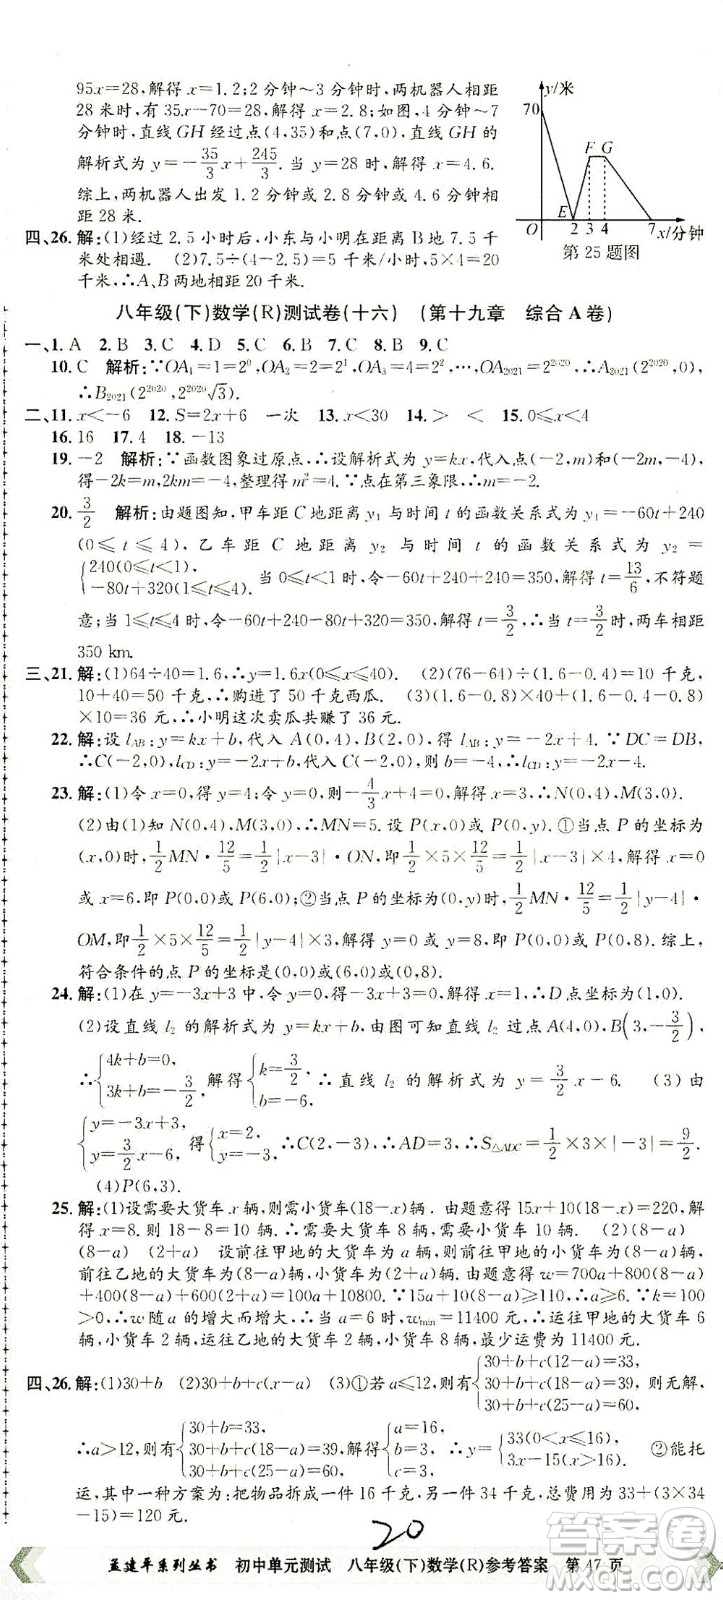 95x=28,解得 x=1.2;2 分钟~3 分钟时,两机器人相距
28 米时,有 35x-70=28,解得 x=2.8;如图,4 分钟~7
分钟时,直线 GH 经过点(4,35)和点(7,0),直线 GH 的
解析式为 y=-35/3x+245/3.当 y=28 时,解得 x=4.6.
综上,两机器人出发 1.2 分钟或 2.8 分钟或 4.6 分钟相
距 28 米.
y/米
70
F G
E
O 2 3 4 7 x/分钟
第 25 题图
四、26. 解:(1)经过 2.5 小时后,小东与小明在距离 B 地 7.5 千
米处相遇. (2)7.5÷(4-2.5)=5 千米/小时,5×4=20
千米,∴A、B 两地相距 20 千米.
八年级(下)数学(R)测试卷(十六) (第十九章 综合 A 卷)
一、1. A 2. B 3. A 4. B 5. C 6. A 7. D 8. B 9. C
10. C 解析:∵OA₁=1=2⁰,OA₂=2=2¹,OA₃=4=2²,…,OA₂₀₂₁=2²⁰²⁰,∴A₂₀₂₁(2²⁰²⁰,0),
∴B₂₀₂₁(2²⁰²⁰,2²⁰²⁰√3).
二、11. x<-6 12. S=2x+6 一次 13. x<30 14. > < 15. 0≤x≤4
16. 16 17. 4 18. -13
19. -2 解析:∵函数图象过原点,∴设解析式为 y=kx,代入点(-2,m)和(m,-8),
得-2k=m,km=-8,解得 m²=16,∵点在第三象限,∴m=-4,∴k=2,∴y=-2x.
20. 3/2 解析:由题图知,甲车距 C 地距离 y₁ 与时间 t 的函数关系式为 y₁=-60t+240
(0≤t≤4),乙车距 C 地距离 y₂ 与时间 t 的函数关系式为 y₂=
{240(0≤t≤1) -80t+320(1<t≤4),∴当 0≤t≤1 时,令-60t+240+240=350,解得 t=13/6,不符题
意;当 1≤t≤4 时,令-60t+240-80t+320=350,解得 t=3/2,∴当 t=3/2 时,两车相距
350 km.
三、21. 解:(1)64÷40=1.6,∴y=1.6x(0≤x≤40). (2)(76-64)÷(1.6-0.4)=10 千克,
10+40=50 千克,∴小明购进了 50 千克西瓜. (3)(1.6-0.8)×40+(1.6-0.4-0.8)
×10=36 元,∴小明这次卖瓜共赚了 36 元.
22. 解:设 l_AB:y=kx+b,代入 A(0,4),B(2,0),得 l_AB:y=-2x+4. ∵DC=DB,
∴C(-2,0),l_CD:y=x+b,代入 C(-2,0),解得 b=-4,∴l_CD:y=-2x-4.
23. 解:(1)令 x=0,得 y=4;令 y=0,则-4/3x+4=0,解得 x=3,∴N(0,4),M(3,0).
(2)由(1)知 N(0,4),M(3,0),∴MN=5. 设 P(x,0)或 P(0,y).①当点 P 的坐标为
(x,0)时,1/2MN·12/5=1/2|x-3|·ON,即1/2×5×12/5=1/2|x-3|×4,解得 x=0
或 x=6,即 P(0,0)或 P(6,0);②当点 P 的坐标为(0,y)时,1/2MN·12/5=1/2|y-4|·
OM,即1/2×5×12/5=1/2|y-4|×3,解得 y=0 或 y=8,即 P(0,0)或 P(0,8).综上,
符合条件的点 P 的坐标是(0,0)或(6,0)或(0,8).
24. 解:(1)在 y=-3x+3 中,令 y=0,则-3x+3=0,解得 x=1,∴D 点坐标为(1,0).
(2)设直线 l₂ 的解析式为 y=kx+b,由图可知直线 l₂ 过点 A(4,0),B(3,-3/2),
∴{4k+b=0, 3k+b=-3/2,解得{k=3/2, b=-6,∴直线 l₂ 的解析式为 y=3/2x-6. (3)由
{y=-3x+3, y=3/2x-6,得{x=2, y=-3,∴C(2,-3),∴AD=3,∴S△ADC=1/2×3×|-3|=9/2.
(4)P(6,3).
25. 解:(1)设需要大货车 x 辆,则需小货车(18-x)辆. 由题意得 15x+10(18-x)=220,解
得 x=8. 则 18-8=10 辆.∴需要大货车 8 辆,需要小货车 10 辆. (2)(8-a)
(8-a) (2+a) 设前往甲地的大货车为 a 辆,则前往甲地的小货车为(8-a)辆,
前往乙地的大货车为(8-a)辆,小货车为(2+a)辆. 由题意得 w=700a+800(8-a)
+400(8-a)+600(2+a)=100a+10800. ∵15a+10(8-a)≥110,∴a≥6. ∵k=100
>0,∴w 随 a 的增大而增大,∴当 a=6 时,w_min=11400 元,∴运往甲地的大货车 6
辆,小货车 2 辆,运往乙地的大货车 2 辆,小货车 8 辆,最少运费为 11400 元.
四、26. 解:(1)30+b (2)30+b+c(x-a) (3)①若 a≤12,则有{30+b+c(12-a)=33, 30+b+c(18-a)=39, 30+b+c(25-a)=60,无解,
∴a>12,则有{30+b=33, 30+b+c(18-a)=39, 30+b+c(25-a)=60,解得{a=16, b=3, c=3,∴y={33(0<x≤16), 3x-15(x>16). ②能托
运,其中一种方案为:把物品拆成一件 16 千克,另一件 34 千克,总费用为 33+(3×34
-15)=120 元.
20
孟建平系列丛书 初中单元测试 八年级(下)数学(R)参考答案 第 47 页